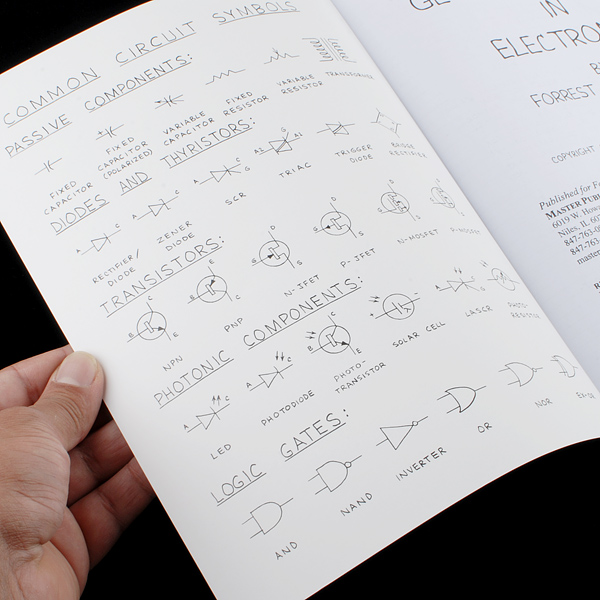 COMMON CIRCUIT SYMBOLS
PASSIVE COMPONENTS:
FIXED CAPACITOR
FIXED CAPACITOR (POLARIZED)
VARIABLE CAPACITOR
FIXED RESISTOR
VARIABLE RESISTOR
TRANSFORMER
DIODES AND THYRISTORS:
A C
A C
A C G
A1 A2 G
RECTIFIER/ DIODE
ZENER DIODE
SCR
TRIAC
TRIGGER DIODE
BRIDGE RECTIFIER
TRANSISTORS:
B C E
B C E
G D S
G D S
NPN
PNP
N-JFET
P-JFET
N-MOSFET
P-MOSFET
PHOTONIC COMPONENTS:
A C
A C
B C E
+ -
LED
PHOTODIODE
PHOTO- TRANSISTOR
SOLAR CELL
LASCR
PHOTO- RESISTOR
LOGIC GATES:
AND
NAND
INVERTER
OR
NOR
IN
ELECTRON
FORREST
COPYRIGHT
Published for
MASTER PUBL
6019 W. Howa
Niles, IL 60
847-763-0
847-763
master